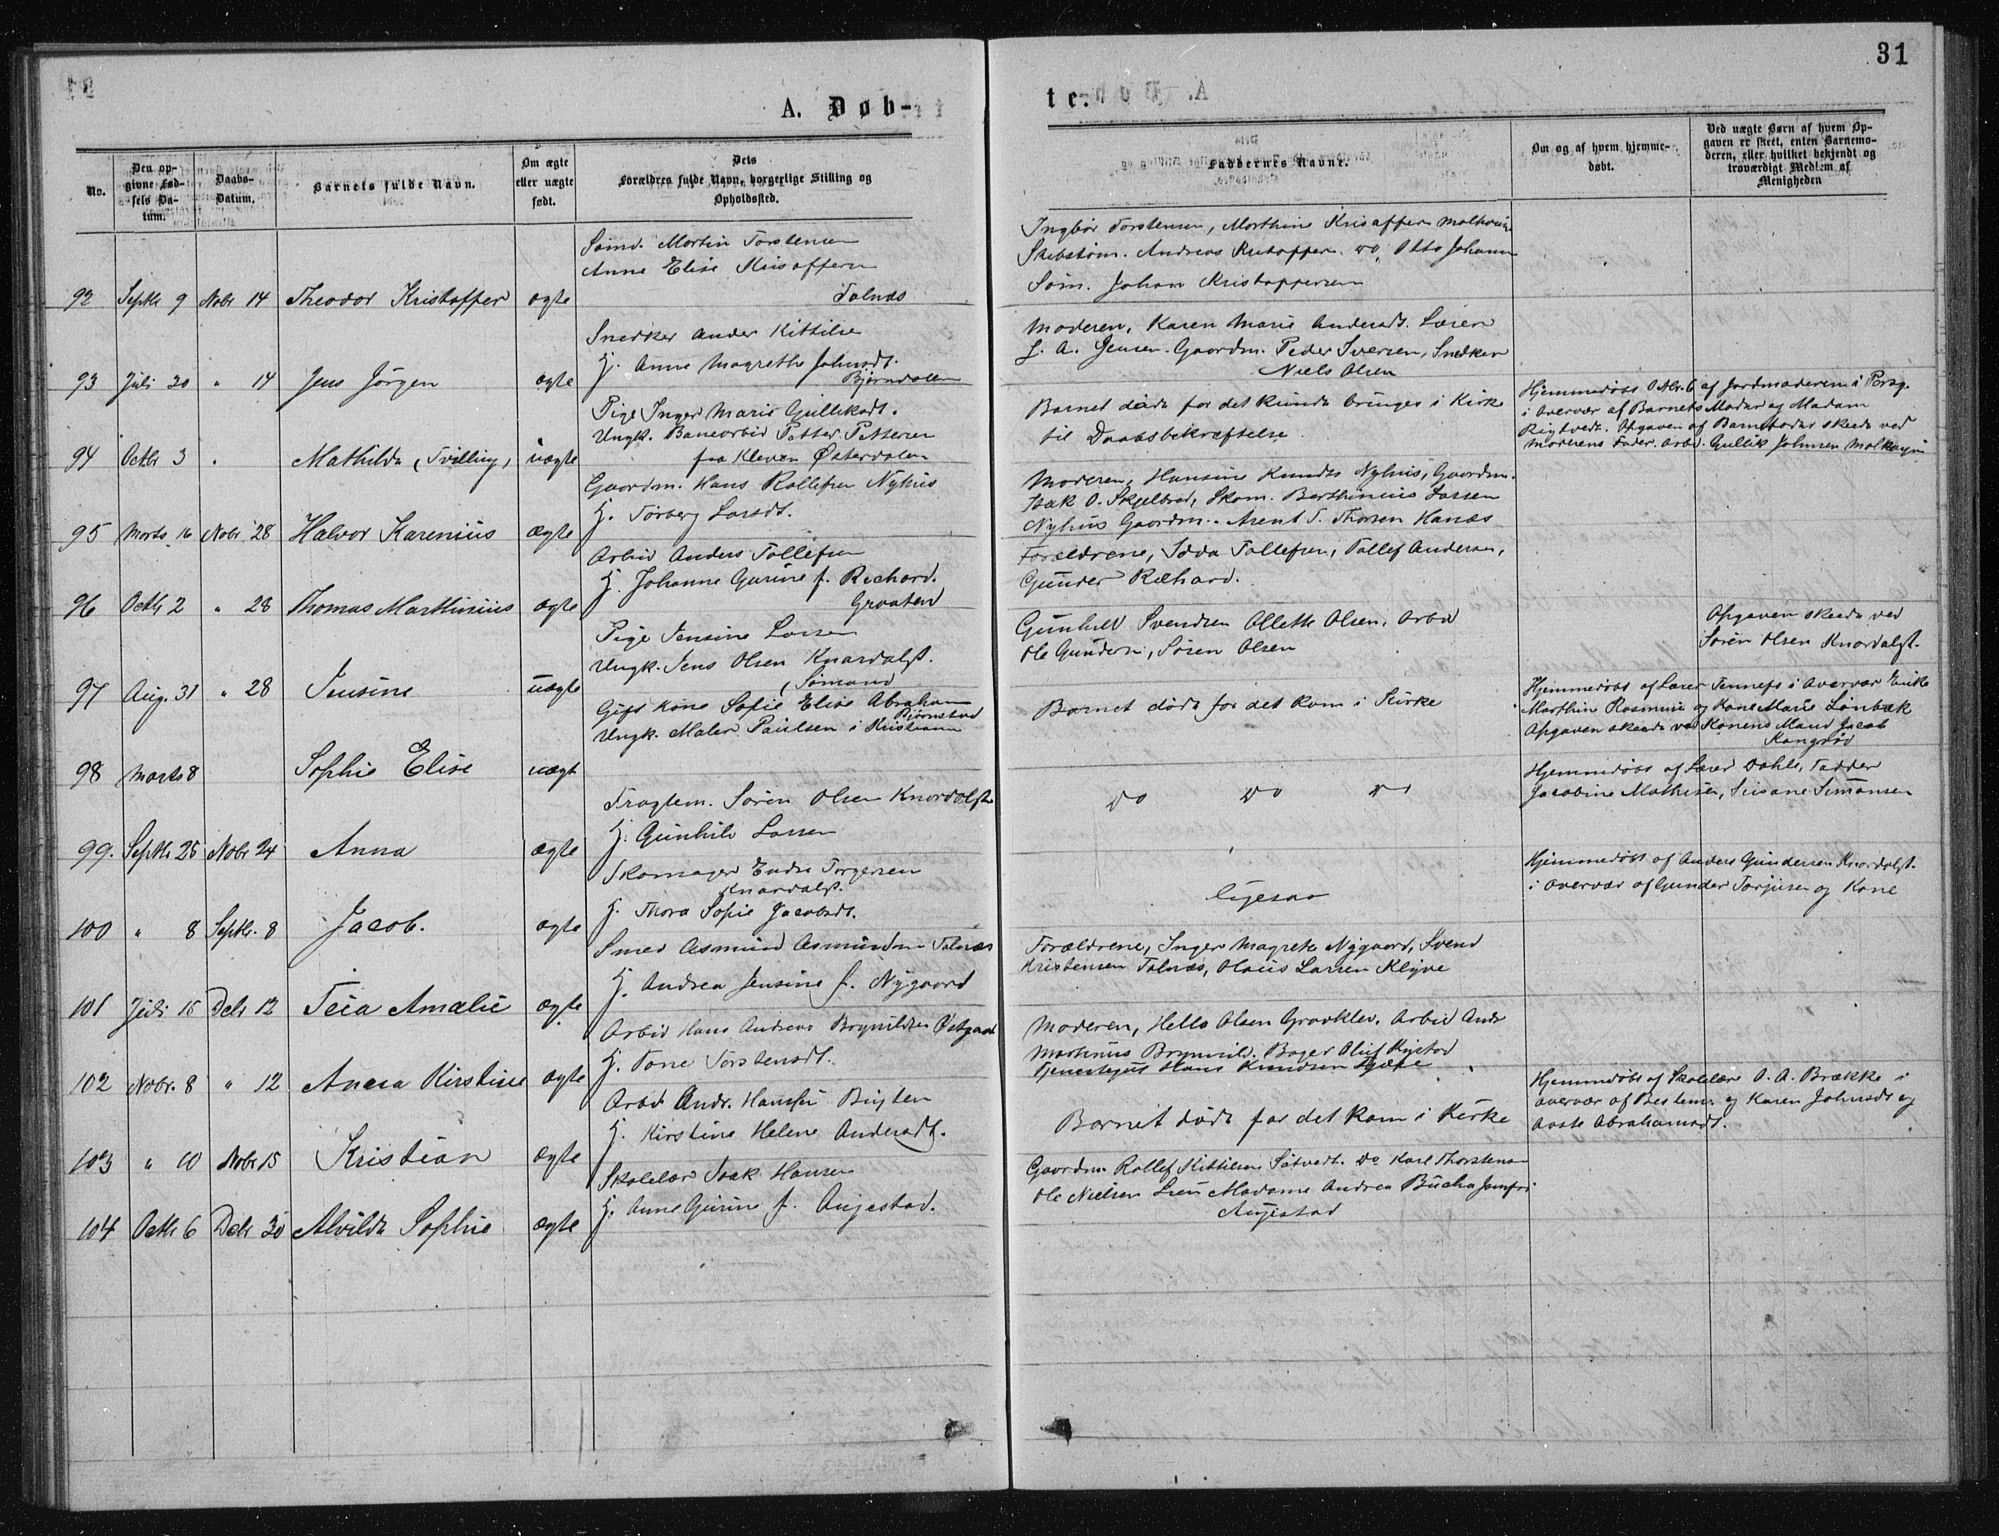 31
A. Døb-
te.
No.
Den op-
givne Fød-
sels Da-
tum.
Daabs-
Datum.
Barnets fulde Navn.
Om ægte
eller uægte
født.
Dets
Forældres fulde Navn, borgerlige Stilling og
Opholdssted.
Faddernes Navne.
Om og af hvem hjemme-
døbt.
Ved uægte Børn af hvem Op-
gaven er skeet, enten Barnemo-
deren, eller hvilket bekjendt og
troværdigt Medlem af
Menigheden
92 Septbr 9 Nobr 14 Theodor Kristoffer ægte
Sømd. Martin Torstensen
Anne Elise Kristoffersen
Tolnæs
Ingbør Torstensen, Marthine Kristoffersen
Andreas Kristoffersen do, Otto Johann
Søm. Johan Kristoffersen
93 Juli 20 " 14 Jens Jørgen ægte
Snedker Ander Kittilse
H. Anne Magrethe Johnsdt.
Bjørndalen
Moderen, Karen Marie Andersdt. Læren
J. A. Jensen. Gaardm. Peder Iversen, Snedker
Niels Olsen
94 Octbr 3 " Mathilde (Tvilling) uægte
Pige Inger Marie Gulliksdt.
Ungk. Banearbid Petter Pettersen
fra Kleven Østerdalen
Barnet døde før det kunde bringes i Kirke
til Daabsbekræftelse
Hjemmedøbt Octbr. 6 af Jordmoderen i Porsg.
i Overvær af Barnets Moder og Madam
Rigtvedt. Opgaven af Barnefader skede ved
Moderens Fader. Arbd. Gullik Johnsen
95 Marts 16 Nobr 28 Halvor Karenius ægte
Gaardm. Hans Rollefsen Nyhus
H. Torberg Larsdt.
Moderen, Hansine Knuds Nyhus, Gaardm.
Isak O. Skjelbred, Skom. Berthinius Larsen
Nyhus Gaardm. Arent T. Thorsen Hanæs
96 Octb 2 " 28 Thomas Marthinius ægte
Arbid Anders Tollefsen
H. Johanne Gurine f. Richard.
Graaten
Forældrene, Idda Tollefsen, Tollef Andersen,
Gunder Richard.
97 Aug. 31 " 28 Jensine uægte
Pige Jensine Larsen
Ungk. Jens Olsen Knardalst.
(Sømand
Gunhild Svendsen Ollette Olsen, Arbd
Ole Gundersn, Søren Olsen
Opgaven skede ved
Søren Olsen Knardalst.
98 Marts 8 Sophie Elise uægt
Gift Kone Sofie Elise Abraham
Bjørnstad
Ungk. Maler Paulsen i Kristiania
Barnet døde før det kom i Kirke
Hjemmedøbt af Lærer Tennefs i Overvær Enke
Marthin Rasmuse og Kone Marie Lønbæk
Opgaven skede ved Konens Mand Jacob
Kongrød
99. Septbr 25 Nobr 24 Anna ægte
Fragtem. Søren Olsen Knardalst
H. Gunhild Larsen
do do do
Hjemmedøbt af Lærer Dahle, Fadder
Jacobine Mathisen, Susane Simonsen
100 " 8 Septbr. 8 Jacob. ægte
Skomager Endre Torgersen
Knardalst.
H. Thora Sofie Jacobsdt.
ligesaa
Hjemmedøbt af Anders Gundersen Knardalst.
i Overvær af Gunder Torjusen og Kone
101 Juli 15 Debr 12 Teia Amalie ægte
Smed Asmund Asmundsn Tolnæs
H. Andrea Jensine f. Nygaard
Forældrene, Inger Magrete Nygaard, Svend
Kristensen Tolnæs, Olaus Larsen Klyve
102 Nobr. 8 " 12 Anna Kirstine ægte
Arbid Hans Andreas Brynildsen Østgaard
H. Tone Torstensdt.
Moderen, Helle Olsen Graaklev. Arbid Andr
Martinus Brynnild. Bager Oluf Kystad
Hans Knudsen
103 " 10 Nobr 15 Kristian ægte
Arbd Andr. Hansen
H. Kirstine Helene Andersdt.
Barnet døde før det kom i Kirke
Hjemmedøbt af Skolelær O. A. Brække i
Overvær af Bestem. og Karen Johnsdt og
Aaste Abrahamsdt.
104 Octbr 6 Debr 30 Alvilde Sophie ægte
Skolelær Isak Hansen
H. Anne Gurine f. Augestad.
Gaardm. Rollef Kittilsen Sætvedt. Do Karl Thorstens
Ole Nielsen Lien Madame Andrea Bucha Jomfru
Augestad